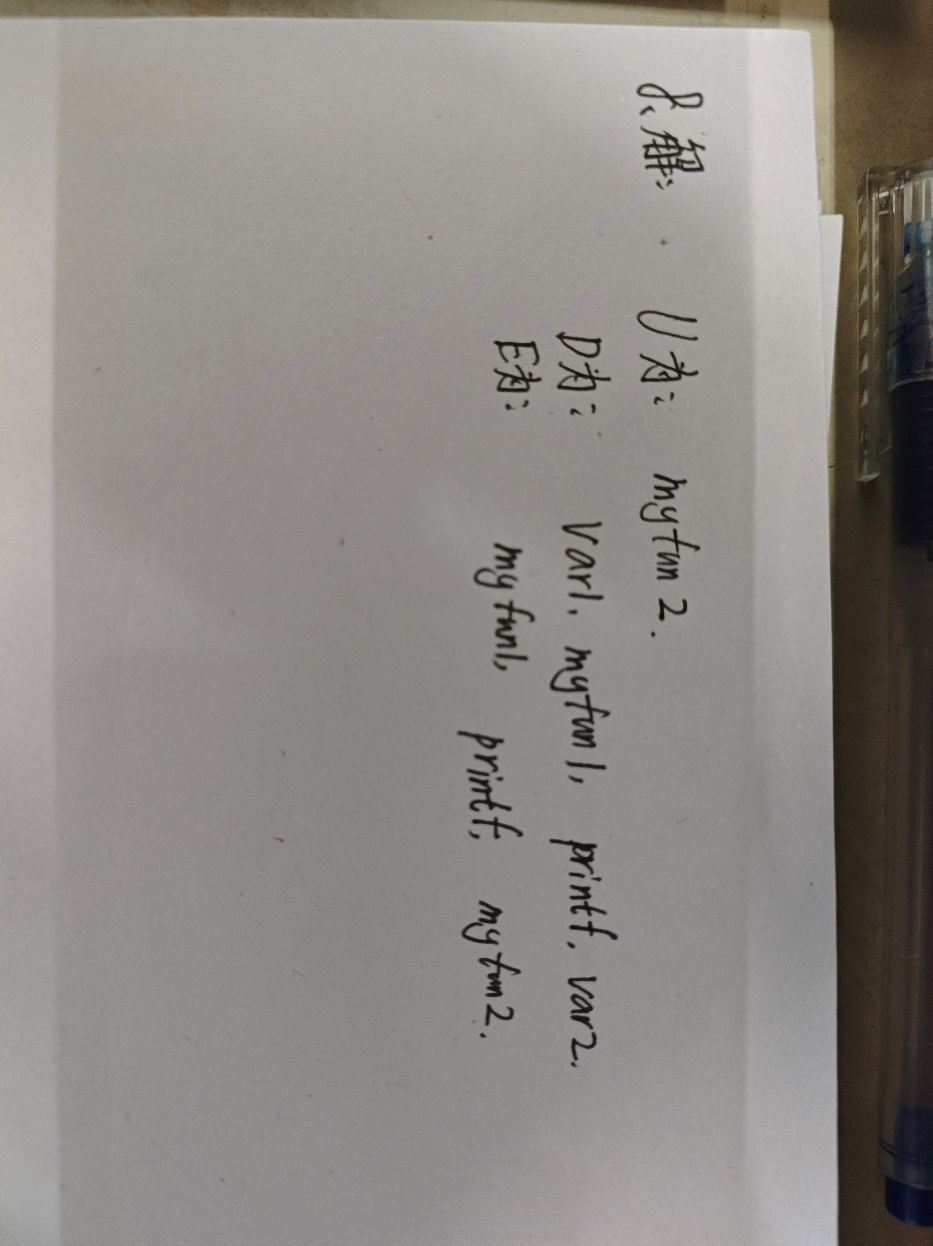 8、解： U为： myfun2.
D为： var1. myfun1, printf, var2.
E为： myfun1, printf, myfun2.